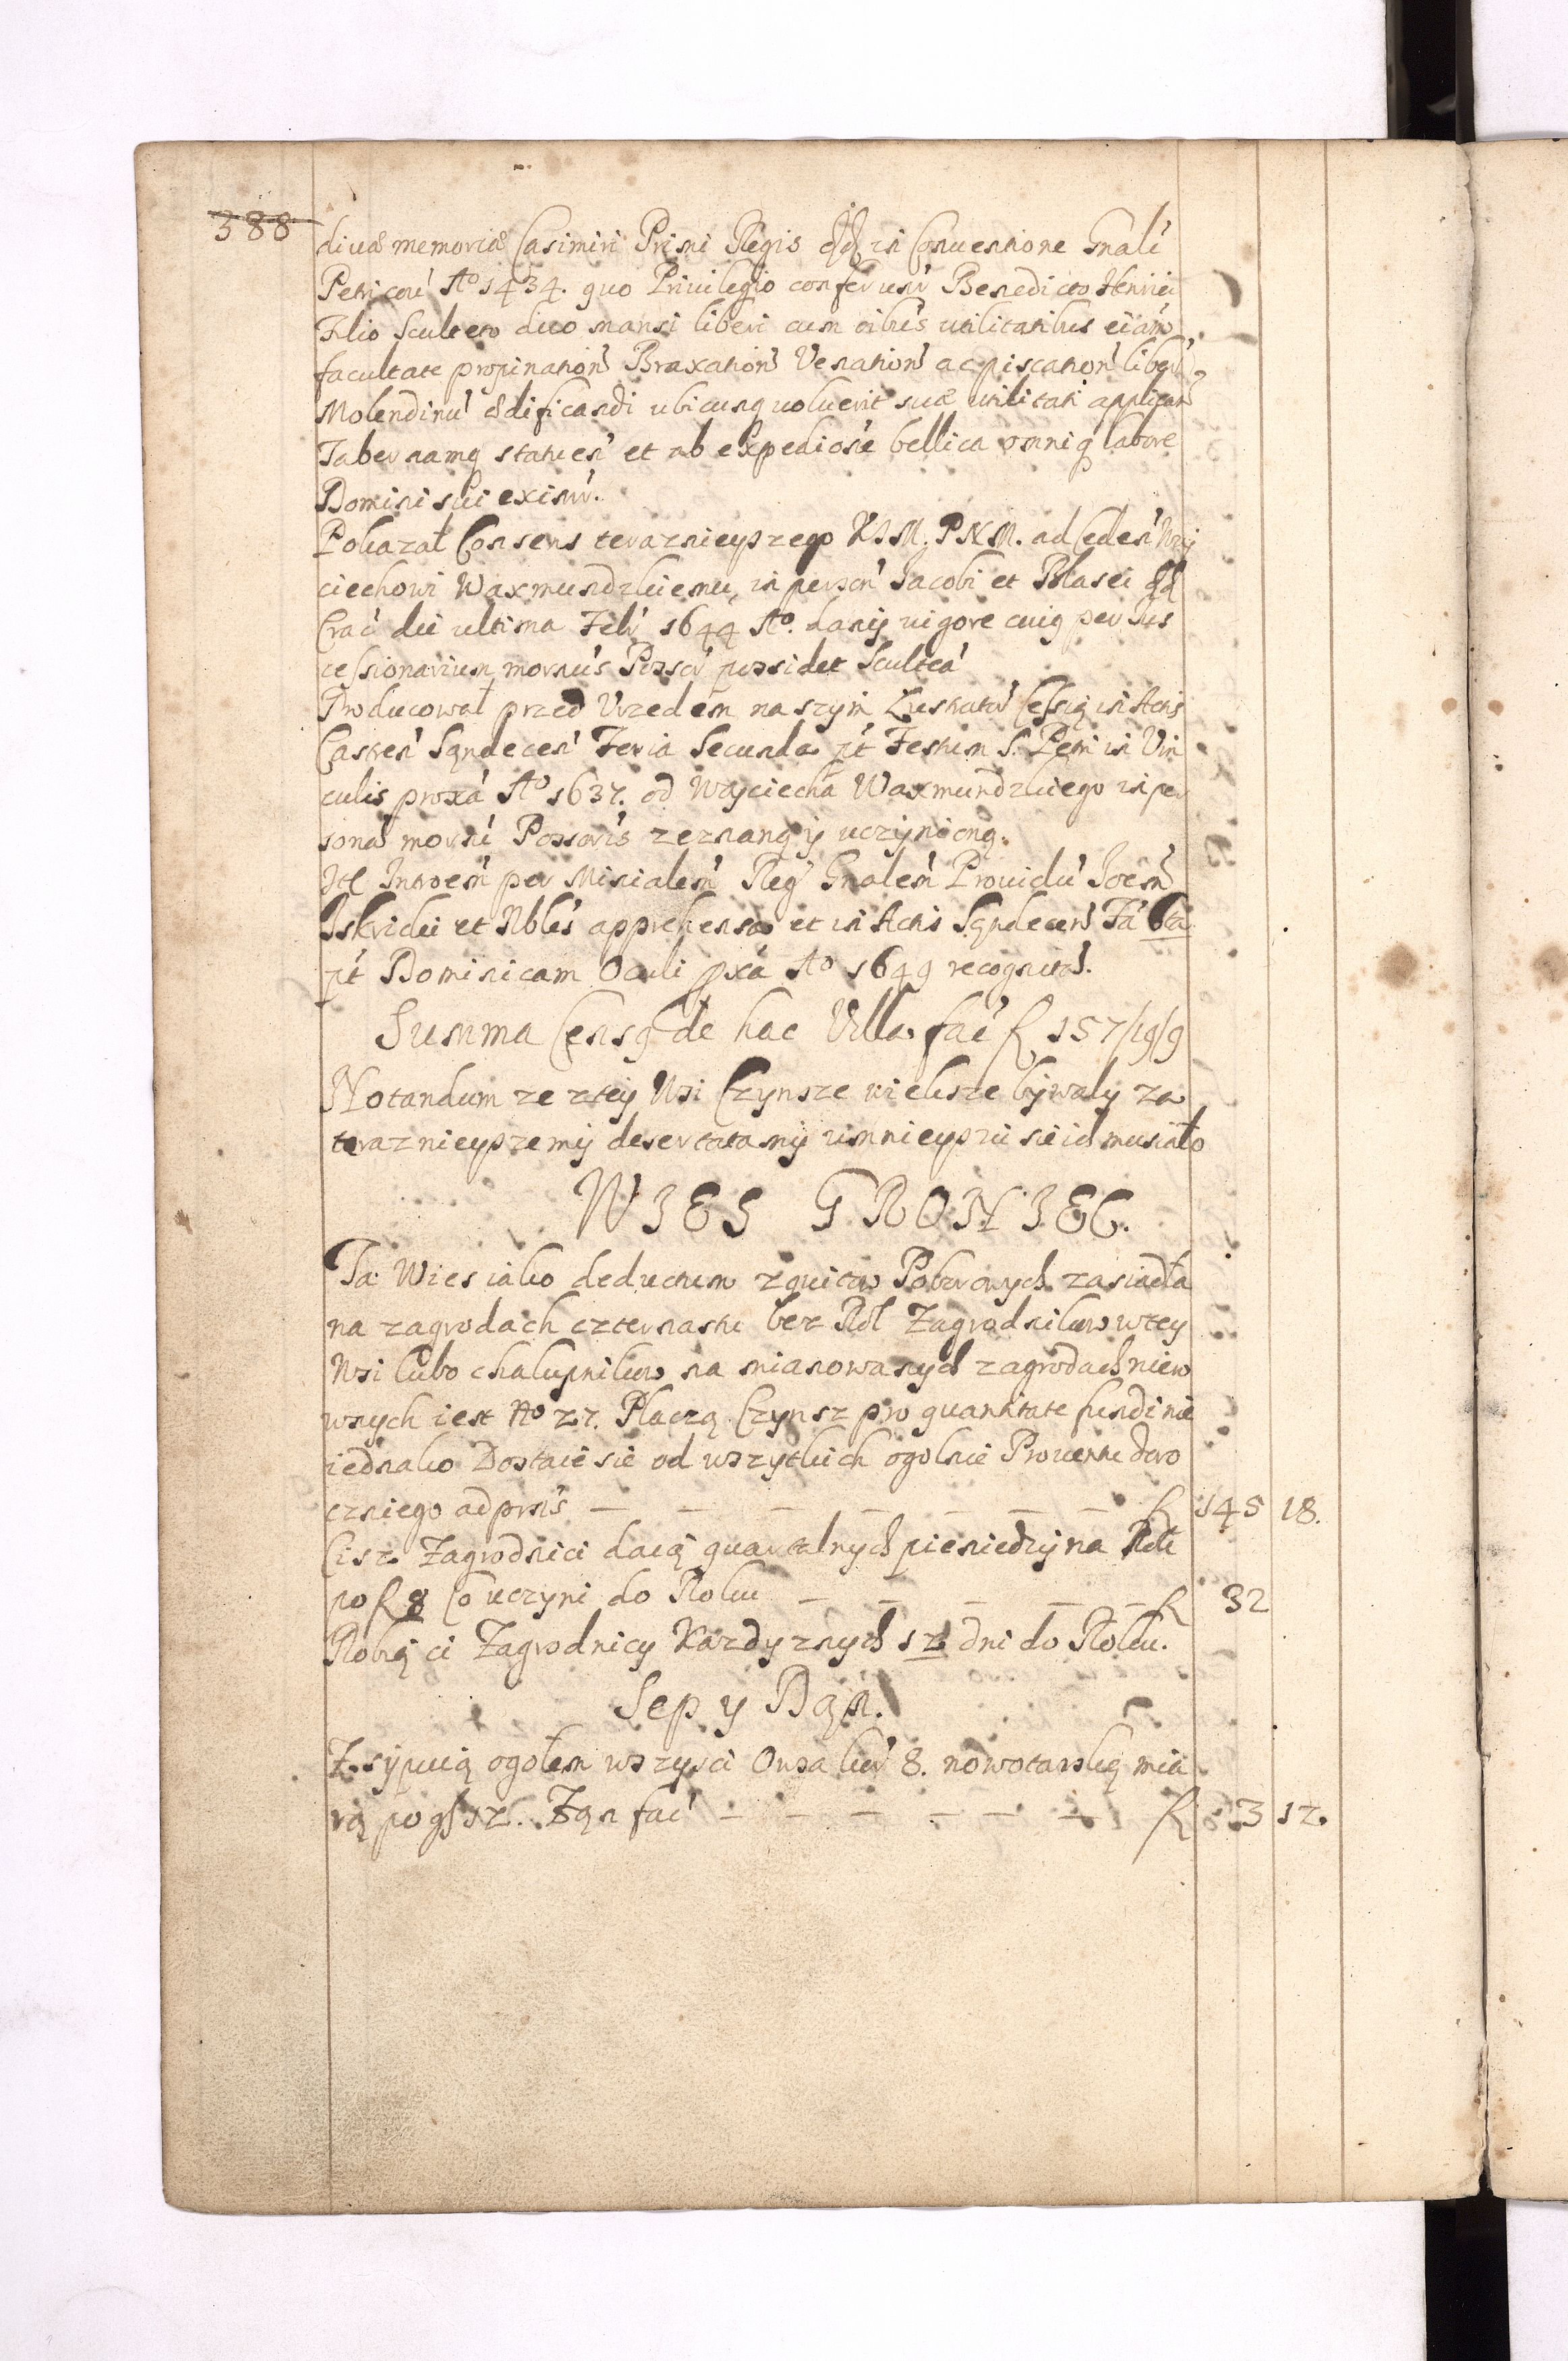 388
divæ memoriæ Casimiri Primi Regis in Conventione Gnali
Petricou Aº 1434. quo Privilegio conferunr Benedicto Henrici
Filio Sculteto duo mansi liberi cum oibus utilitatibus eiam
facultate propination Braxation Venation ac piscation liber
Molendinu ædificandi ubicunq voluerit suæ utilitati applican
Tabernamq statuen et ab expedione bellica omniq labore
Domini sui eximr.
Pokazał Consens teraznieyszego KJM. PNM. ad Ceden Woy
ciechowi Waxmundzkiemu, in person Jacobi et Blasei
Crac die ultima Febr 1644 Aº. dany vigore cuiq per Jus
cessionarium mornus Possor possidet Sculteá
Producował przed Urzedem naszym Lustrator Cessią in Actis
Castren Sąndecen Feria Secunda pt Festum S. Petri in Vin
culis proxa Aº 1637. od Woyciecha Waxmundzkiego in per
sona morni Possoris zeznaną y uczynioną.
Itt Introen per Minialem Reg Gnalem Providu Joem
Iskridii et Nbles apprehensa et in Actis Sąndecen Fa 6ta
pt Dominicam Oculi pxa Aº 1649 recognita.
Summa Censq de hac Villa fac f 157/19/9
Notandum ze ztey Wsi Czynsze wieksze bywały za
teraznieyszemi desertatamy umnieyszic sie ich musiało
WIES GRONIEC.
Ta Wies iako deductum z quitow Poborowych zasiadła
na zagrodach czternastu bez Rol Zagrodnikow wtey
Wsi lubo chalupnikow na mianowanych zagrodach niero
wnych iest Nº 27. Płaczą Czynsz pro quantitate fundi nie
iednako Dostaie sie od wszytkich ogolnie Proventu doro
cznego ad prns — — — — — — f 145 18.
Cisz Zagrodnici daią quartalnych pieniedzy na Rok
po f 8 Co uczyni do Roku — — — — — f 32
Robią ci Zagrodnicy Kazdy znych 12 dni do Roku.
Sep y Dąn.
Zsypuią ogołem wszysci Owsa kor 8. nowotarską mia
rą po g 12. Ząn fac — — — — — — f 3 12.